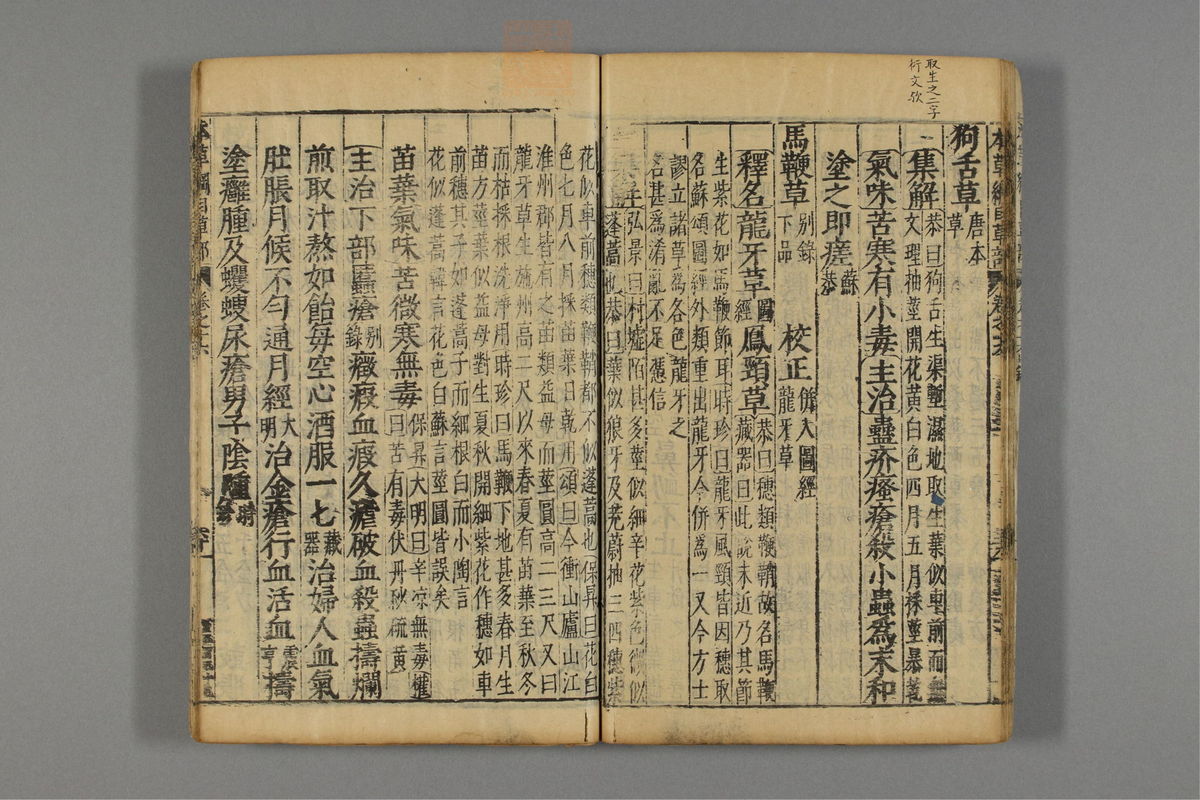 取生之二字
衍文欤
狗舌草唐本草
集解恭曰狗舌生渠塹濕地取生葉似車前而無
文理抽莖開花黃白色四月五月采莖暴
氣味苦寒有小毒主治蠱疥瘙瘡殺小蟲為末和
塗之即瘥蘇恭
馬鞭草别錄下品 校正併入圖經龍牙草
釋名龍牙草圖經鳳頸草恭曰穗類鞭鞘故名馬鞭藏器曰此說未近乃其節
生紫花如馬鞭節耳時珍曰龍牙鳳頸皆因穗取
名蘇頌圖經外類重出龍牙今併為一又今方士
謬立諸草為各色龍牙之
名甚為淆亂不足憑信
弘景曰村墟陌甚多莖似細辛花紫色微似
蓬蒿也恭曰葉似狼牙及茺蔚抽三四穗紫
花似車前穗類鞭鞘都不似蓬蒿也保昇曰花白
色七月八月採苗葉日乾用頌曰今衡山廬山江
淮州郡皆有之苗類益母而莖圓高二三尺又曰
龍牙草生施州高二尺以來春夏有苗葉至秋冬
而枯採根洗淨用時珍曰馬鞭下地甚多春月生
苗方莖葉似益母對生夏秋開細紫花作穗如車
前穗其子如蓬蒿子而細根白而小陶言
花似蓬蒿韓言花色白蘇言莖圓皆誤矣
苗葉氣味苦微寒無毒保昇大明曰辛凉無毒權曰苦有毒伏丹砂硫黃
主治下部䘌瘡别錄癥瘕血瘕久瘧破血殺蟲擣爛
煎取汁熬如飴每空心酒服一匕藏器治婦人血氣
肚脹月候不勻通月經大明治金瘡行血活血震亨擣
塗癰腫及蠷螋尿瘡男子陰腫時珍